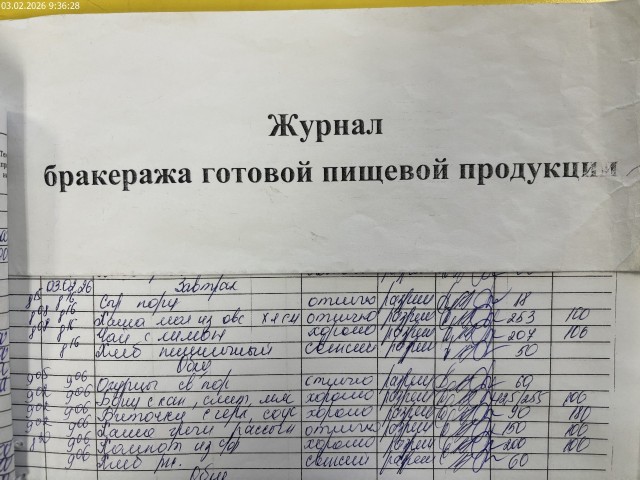 03.02.2026 9:36:28
Журнал
бракеража готовой пищевой продукции
03.02.26 Завтрак
8 16 Сыр порц отлично разреш 18
8 08 8 16 Каша мол из овс хл отлично разреш 253 100
8 08 8 16 Чай с лимон хорошо разреш 207 100
8 16 Хлеб пшеничный свежий разреш 50
Обед
9 05 9 06 Огурцы св пор отлично разреш 60
9 02 9 06 Борщ с кап, смет, мяс хорошо разреш 100
9 02 9 06 Биточки с соус хорошо разреш 90 100
9 02 9 06 Каша греч рассып отлично разреш 150 100
9 06 Компот из с/ф хорошо разреш 200 100
9 06 Хлеб рж. свежий разреш 60